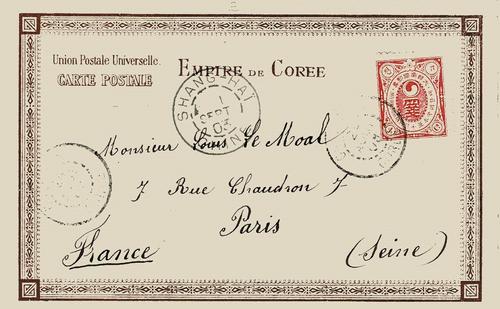 Union Postale Universelle.
CARTE POSTALE
EMPIRE DE COREE
SHANG-HAI
1
SEPT
05
Monsieur Louis Le Moal
7 Rue Chaudron 7
Paris
France (Seine)